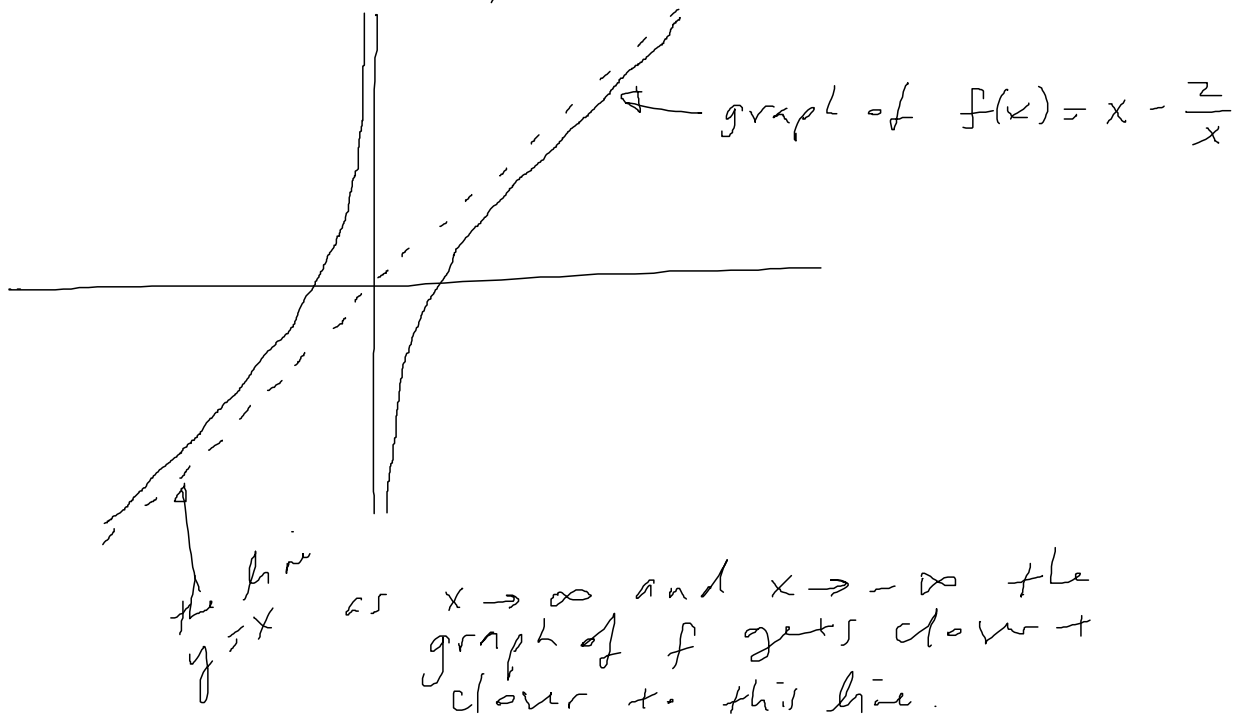 graph of f(x) = x - 2/x
the line
y = x
as x → ∞ and x → -∞ the
graph of f gets closer +
closer to this line.